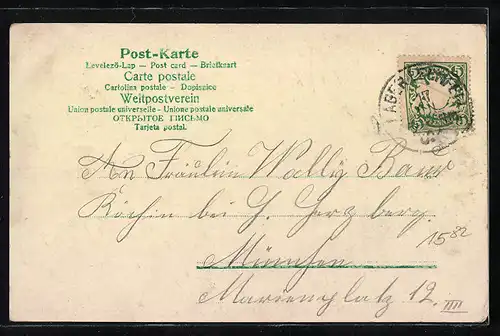 Post-Karte
Levelező-Lap — Post card — Briefkaart
Carte postale
Cartolina postale - Dopisnice
Weltpostverein
Union postale universelle - Unione postale universale
ОТКРЫТОЕ ПИСЬМО
Tarjeta postal.
An Fräulein Wally Baur
Köchin bei H. Herzberg.
München
Marienplatz 12. IIII
1582